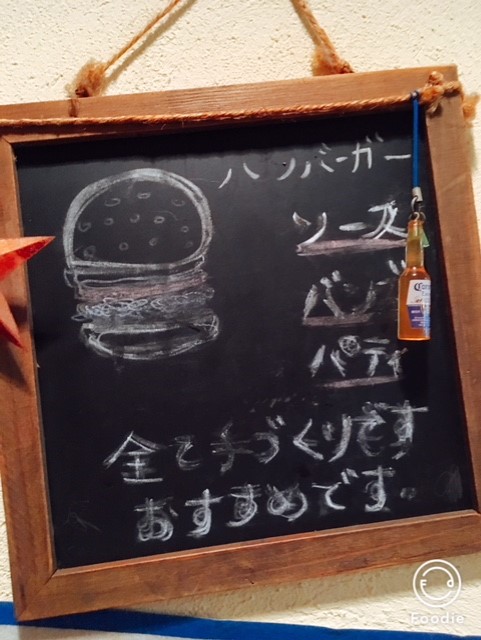 ハンバーガー
ソース
バンズ
パティ
全て手づくりです
おすすめです。
Foodie